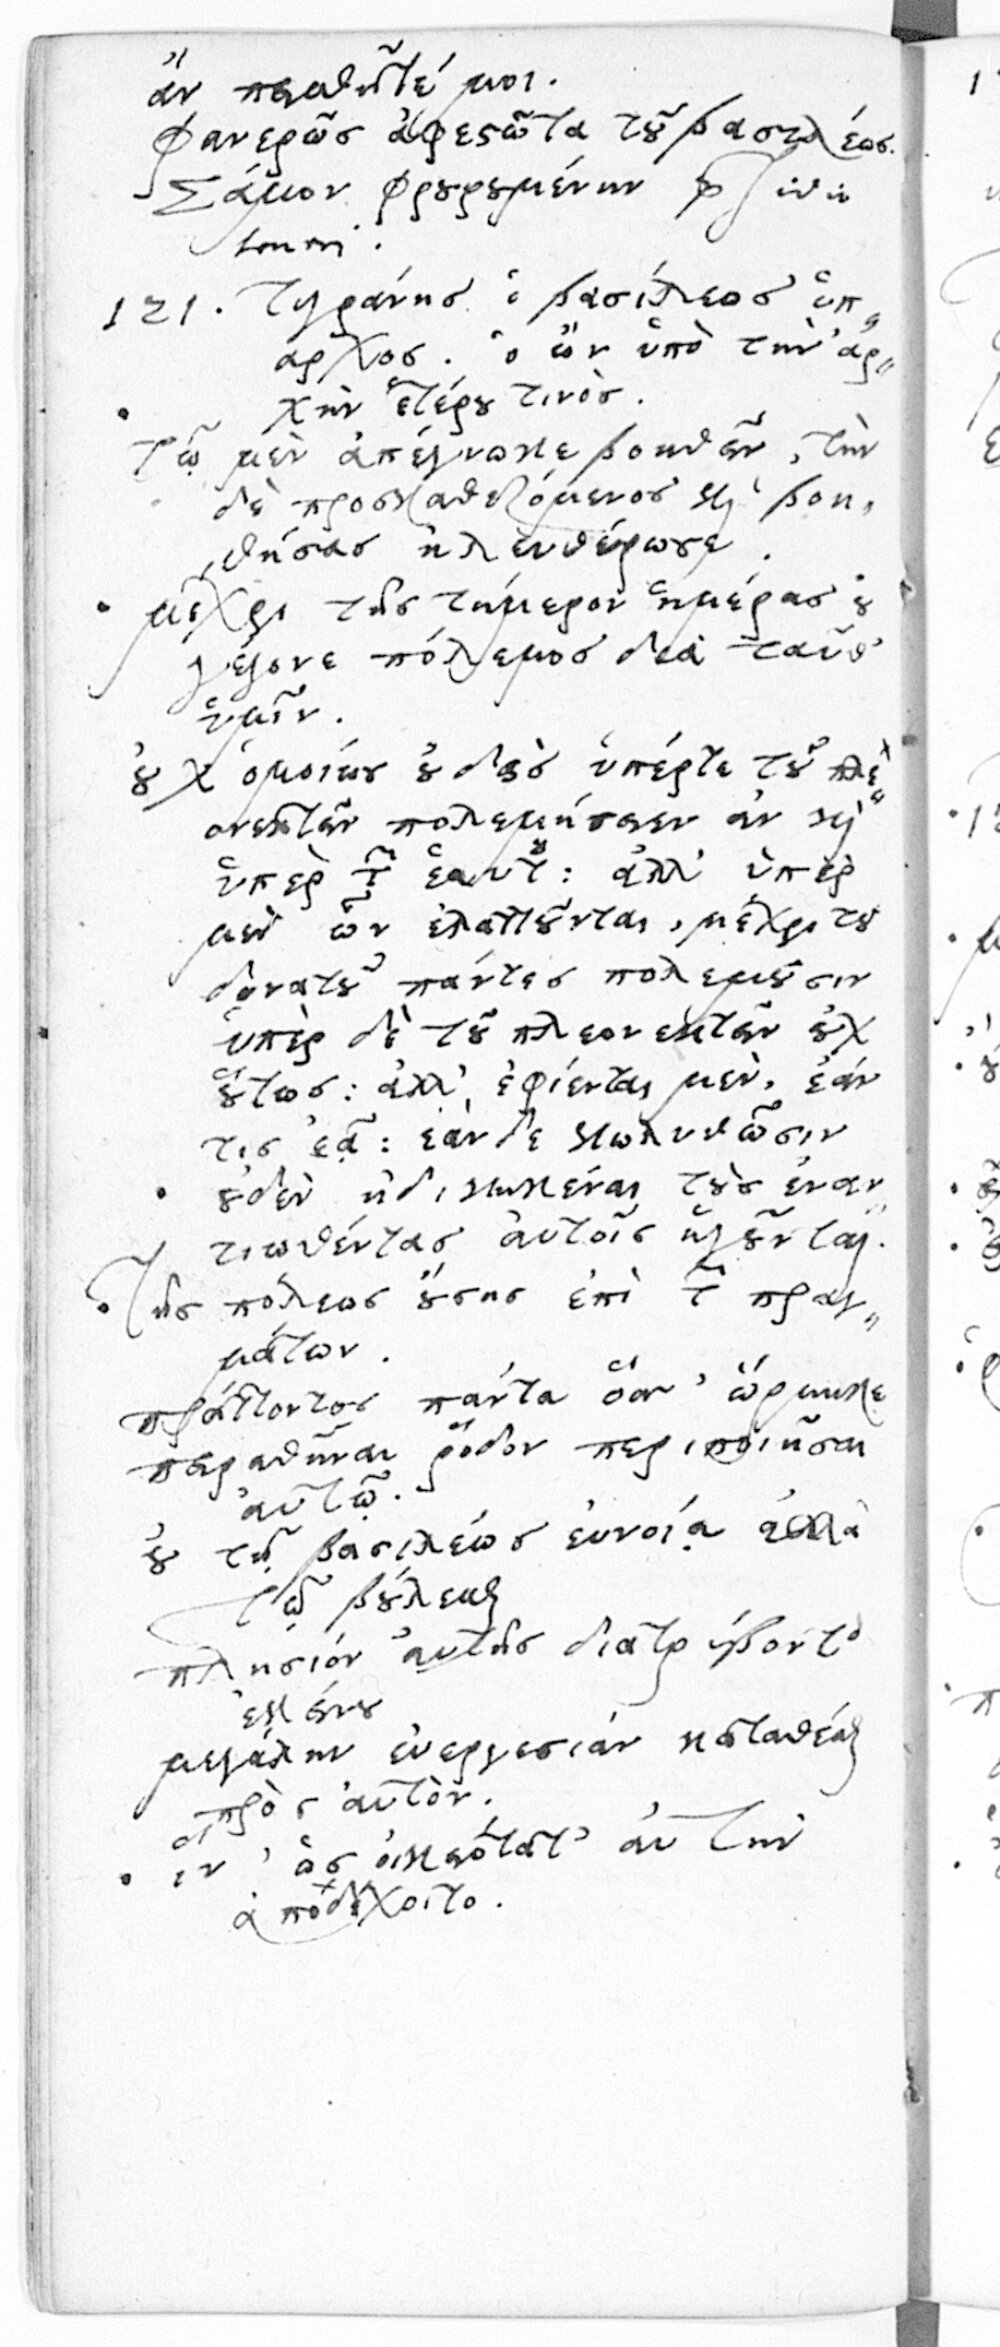 ἂν πεισθῆτέ μοι.
φανερῶς ἀφεστῶτα τοῦ βασιλέως.
Σάμον φρουρουμένην
121. Τιγράνης ὁ βασίλεως ὕπ„
αρχος. ὁ ὢν ὑπὸ τὴν ἀρ„
χὴν ἑτέρου τινὸς.
τῷ μὲν ἀπέγνωκε βοηθεῖν, τὴν
δὲ προσκαθεζόμενος καὶ βοη„
θήσας ἠλευθέρωσε.
μέχρι τῆς τήμερον ἡμέρας οὐ
γέγονε πόλεμος διὰ ταῦθ'
ὑμῖν.
οὐχ ὁμοίως οὐδεὶς ὑπέρ τε τοῦ πλε„
ονεκτεῖν πολεμήσειεν ἂν καὶ
ὑπὲρ τῶν ἑαυτοῦ: ἀλλ' ὑπὲρ
μὲν ὧν ἐλαττοῦνται, μέχρι τοῦ
δυνατοῦ πάντες πολεμοῦσιν
ὑπὲρ δὲ τοῦ πλεονεκτεῖν οὐχ
οὕτως: ἀλλ' ἐφίενται μὲν, ἐάν
τις ἐᾷ: ἐὰν δὲ κωλυθῶσιν
οὐδὲν ἠδικηκέναι τοὺς ἐναν„
τιωθέντας αὐτοῖς ἡγοῦνται.
τῆς πόλεως οὔσης ἐπὶ τῶν πραγ„
μάτων.
πράττοντος πάντα ὅσα ὥρμηκε
πειραθῆναι ῥόδον περιποιῆσαι
αὐτῷ.
οὐ τῇ βασιλέως εὐνοίᾳ ἀλλὰ
τῷ βούλεσθαι
πλησίον αὐτῆς διατρίβοντος
ἐκείνου
μεγάλην εὐεργεσίαν καταθέσθαι
πρὸς αὐτὸν.
ἵν' ὡς οἰκειότατ' αὐτὴν
ἀποδέχοιτο.